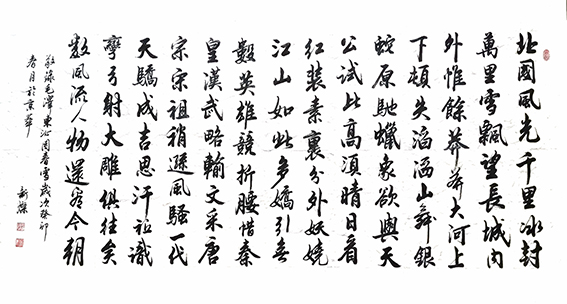 北國風光千里冰封
萬里雪飄望長城內
外惟餘莽莽大河上
下頓失滔滔山舞銀
蛇原馳蠟象欲與天
公試比高須晴日看
紅裝素裹分外妖嬈
江山如此多嬌引無
數英雄競折腰惜秦
皇漢武略輸文采唐
宗宋祖稍遜風騷一代
天驕成吉思汗祇識
彎弓射大雕俱往矣
數風流人物還看今朝
敬錄毛澤東沁園春雪歲次癸卯
春月於京華